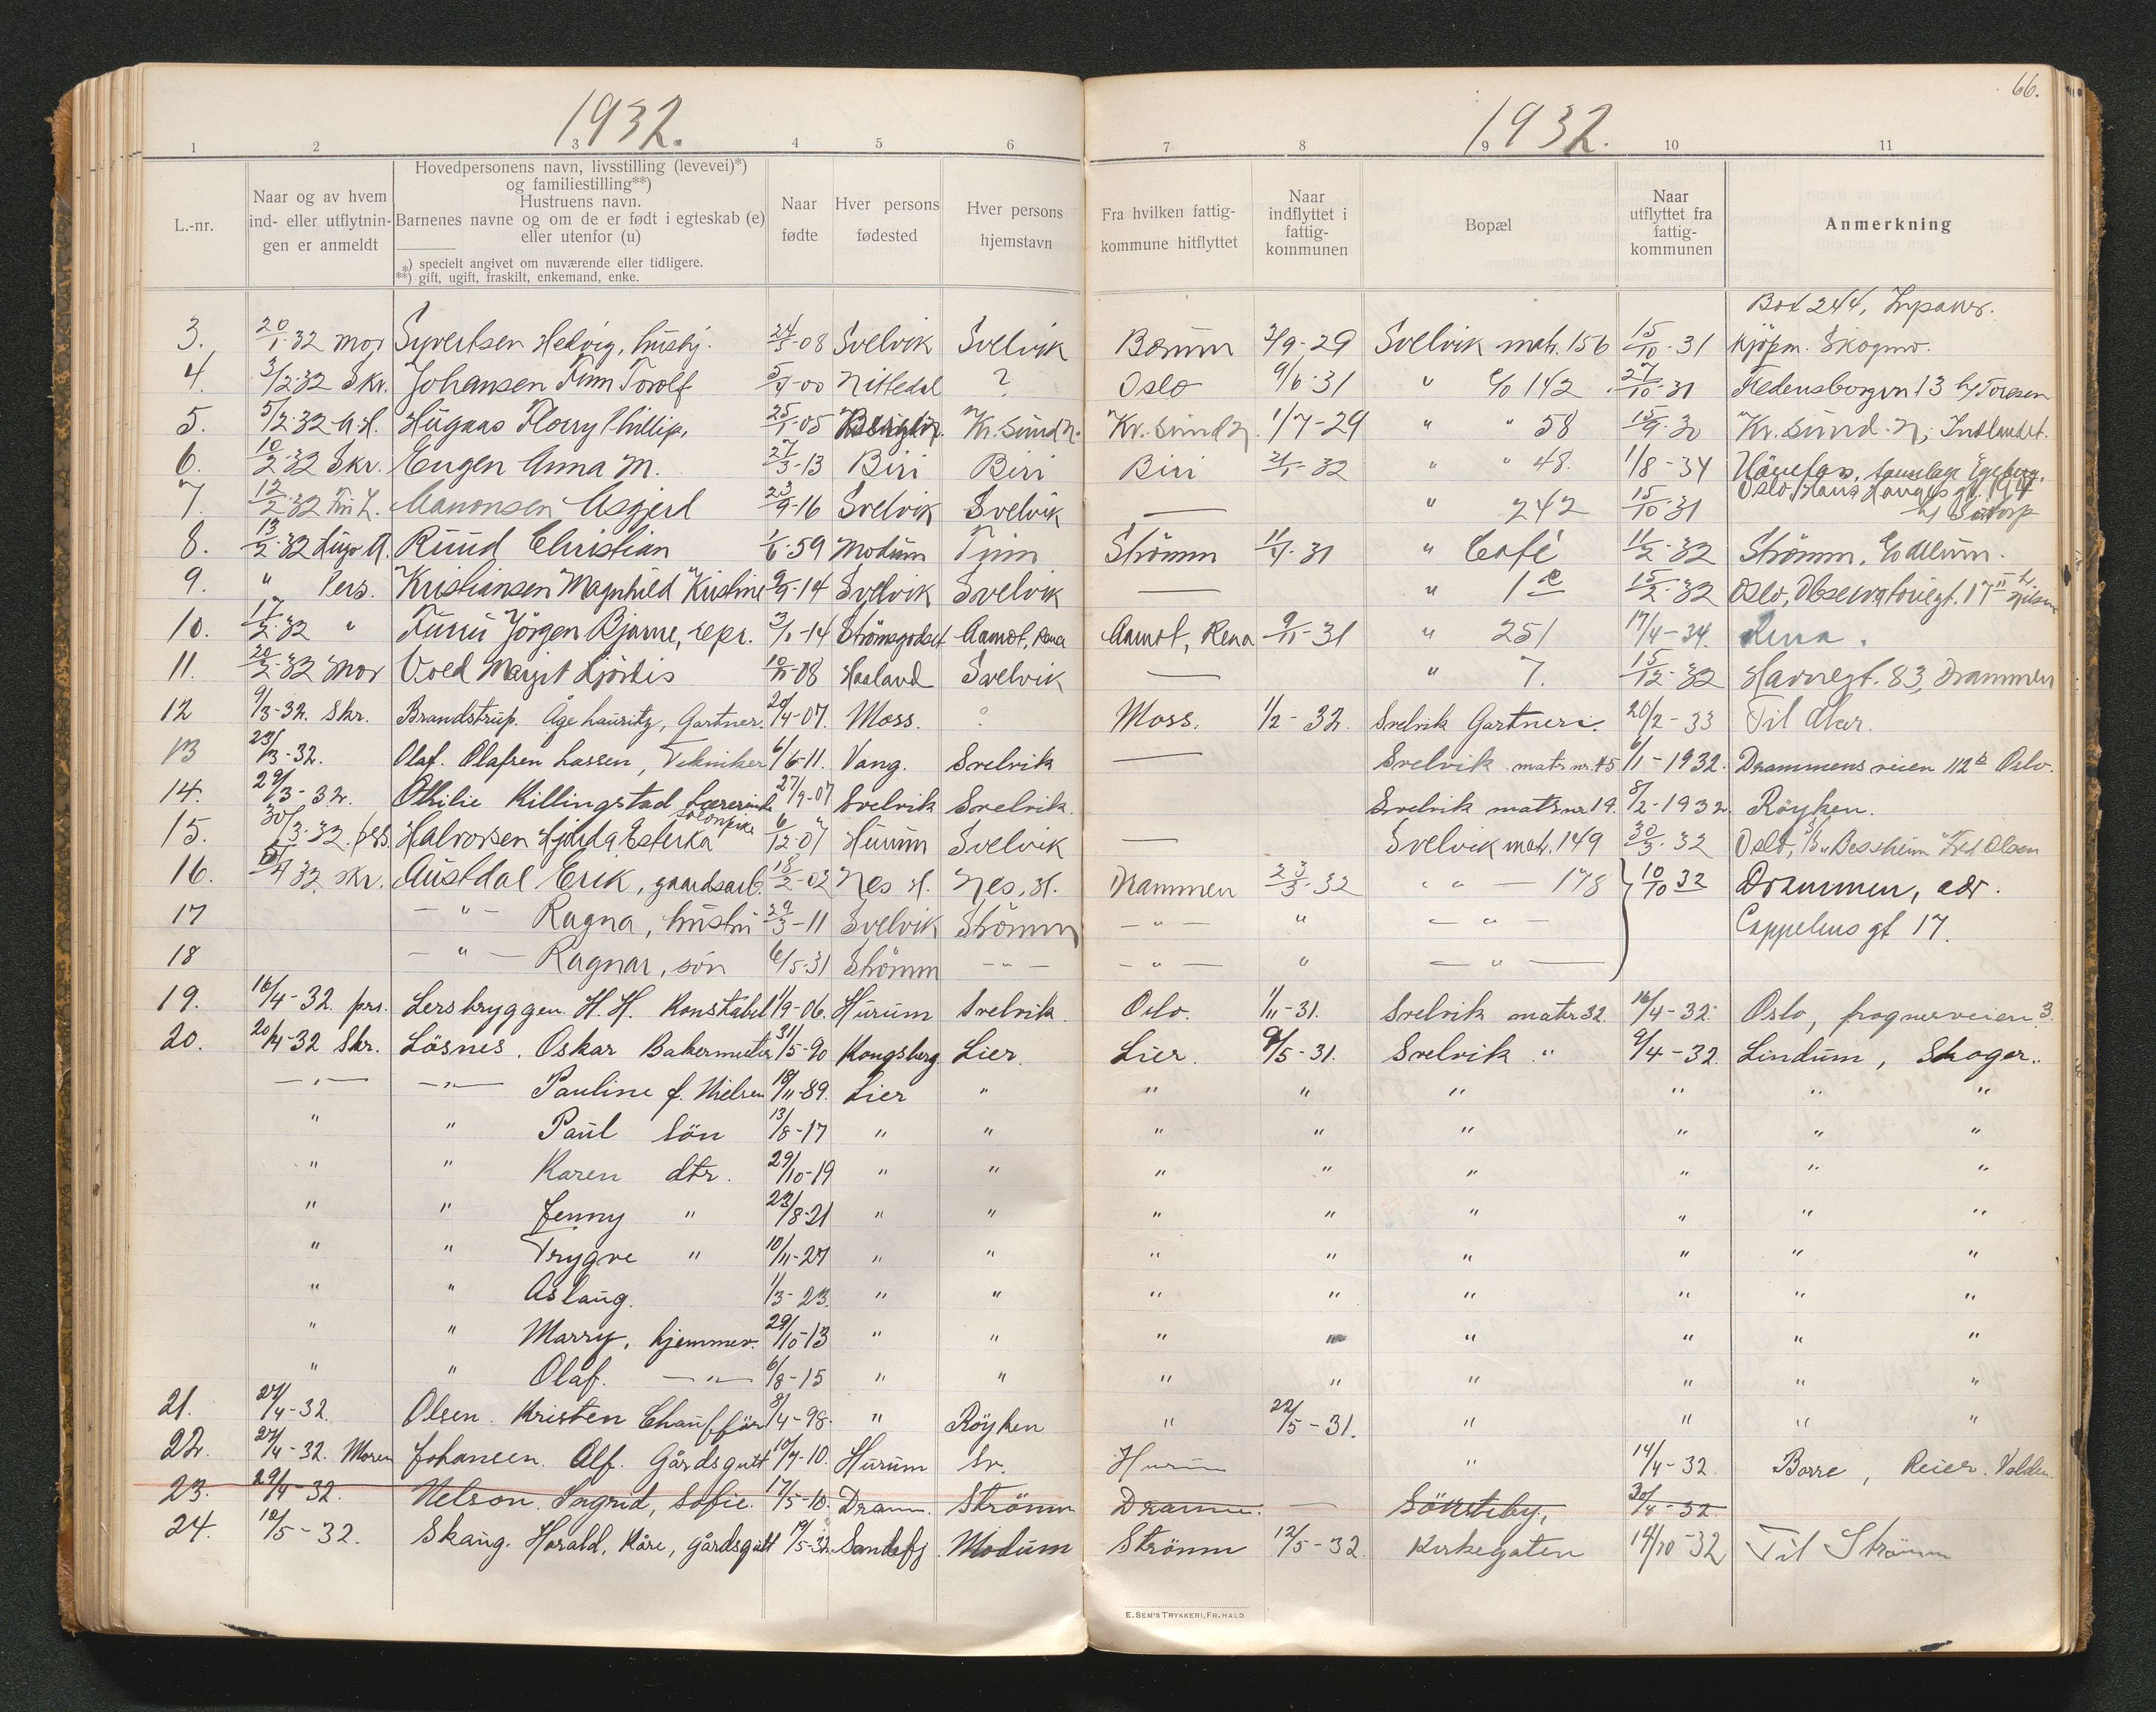 66.
1932. 1932.
1 2 3 4 5 6 7 8 9 10 11
L.-nr.
Naar og av hvem
ind- eller utflytnin-
gen er anmeldt
Hovedpersonens navn, livsstilling (levevei)*)
og familiestilling**)
Hustruens navn.
Barnenes navne og om de er født i egteskab (e)
eller utenfor (u)
*) specielt angivet om nuværende eller tidligere.
**) gift, ugift, fraskilt, enkemand, enke.
Naar
fødte
Hver persons
fødested
Hver persons
hjemstavn
Fra hvilken fattig-
kommune hitflyttet
Naar
indflyttet i
fattig-
kommunen
Bopæl
Naar
utflyttet fra
fattig-
kommunen
Anmerkning
Box 244,
3. 20/1-32 mor Syvertsen Hedvig, hushj. 24/5-08 Svelvik Svelvik Bærum 3/9-29 Svelvik matr. 156 15/10-31 Kjöpm. Skogmo.
4. 3/2-32 Skr. Johansen Finn Torolf 5/9-00 Nittedal ? Oslo 9/6-31 " c/o 142 27/10-31 13 h/ Toresen
5. 5/2-32 A.H. Hugaas Phillip, 25/1-05 Kr.sund N. Kr. sund N. 1/7-29 " " 58 15/9-30 Kr. sund. N, Indlandet.
6. 10/2-32 Skr. Eugen Anna M. 27/3-13 Biri Biri Biri 2/1-32 " " 48. 1/8-34 Hönefoss,
7. 12/2-32 Asgjerd 23/9-16 Svelvik Svelvik — " 242 15/10-31 Oslo, Hans Hauges gt.
8. 13/2-32 Ruud Christian 1/6-59 Modum Strömm 11/9-31 " Café 11/2-32 Strömm,
9. " Pers. Kristiansen Magnhild Kristine 9/9-14 Svelvik Svelvik — " 1 e 15/2-32 Oslo, Observatoriegt. 17 II
10. 17/2-32 " Furu Jörgen Bjarne, repr. 3/1-14 Strömsgodset Aamot, Rena Aamot, Rena 9/11-31 " 251 17/4-34. Rena.
11. 20/2-32 mor Voed Margit Hjördis 10/11-08 Haaland Svelvik — " 7. 15/12-32 Havnegt. 83, Drammen
12 9/3-32. Skr. Brandstrup. Åge Lauritz, Gartner. 20/4-07. Moss. ? Moss. 1/2-32. Svelvik Gartneri. 20/2-33 Til Aker.
13 23/3-32. Olaf. Olafsen Lassen, Tekniker 6/6-11. Vang. Svelvik — Svelvik matr nr. 45 6/1-1932. Drammensveien 112 b Oslo.
14. 29/3-32. Othilie Killingstad Lærerinde 27/9-07 Svelvik Svelvik. Svelvik matr nr 19. 8/2-1932. Röyken.
15. 30/3-32. prs. Halvorsen Hjördis Esterka 6/12-07 Hurum Svelvik — Svelvik matr. 149 30/3-32 Oslo, S/S "Bessheim" Fred Olsen
16. 32 skr. Austdal Erik, gaardsarb. 18/2-02 Nes H. Nes, H. Drammen 23/3-32 " " — 178 10/10 32 Drammen, adr.
17 — " — Ragna, hustru 29/3-11 Svelvik Strömm — " — " — " — Cappelens gt 17.
18 — " — Ragnar, sön 6/5-31 Strömm — " — — " — " — " —
19. 16/4-32 prs. Lersbryggen H. H. Konstabel 1/9-06. Hurum Svelvik. Oslo. 1/11-31. Svelvik matr 32. 16/4-32. Oslo, frognerveien 3.
20. 20/4-32 Skr. Lösnes, Oskar Bakermester 31/5-90 Kongsberg Lier. Lier. 9/5-31. Svelvik " 9/4-32. Lindum, Skoger.
— " — — " — Pauline f. Nielsen 18/11-89. Lier " " " " " " "
" " Paul Sön 13/8-17 " " " " " " " "
" " Karen dtr. 29/10-19 " " " " " " " "
" " Jenny " 23/8-21 " " " " " " " "
" " Trygve " 10/11-27 " " " " " " " "
" " Aslaug. 1/3-23. " " " " " " " "
" " Marry, hjemmev. 29/10-13 " " " " " " "
" " Olaf. — " — 6/8-15 " " " " " " " "
21. 27/4-32. Olsen. Kristen Chauffför 8/4-98. " Röyken " 22/5-31. " " " "
22. 27/4-32. Moren Johansen. Alf. Gårdsgutt 10/9-10. Hurum Sv. Hurum " 14/4-32. Borre, Reier. Valden.
23. 29/4-32. Nelson. Ingrid, Sofie. 17/5-10. Dramm. Strömm Dramm. — 30/4-32
24. 12/5-32. Skaug. Harald, Kåre, gårdsgutt 19/5-32. Sandefj. Modum Strömm 12/5-32. Kirkegaten 14/10-32 Til Strömm
E. SEM'S TRYKKERI, FR.HALD